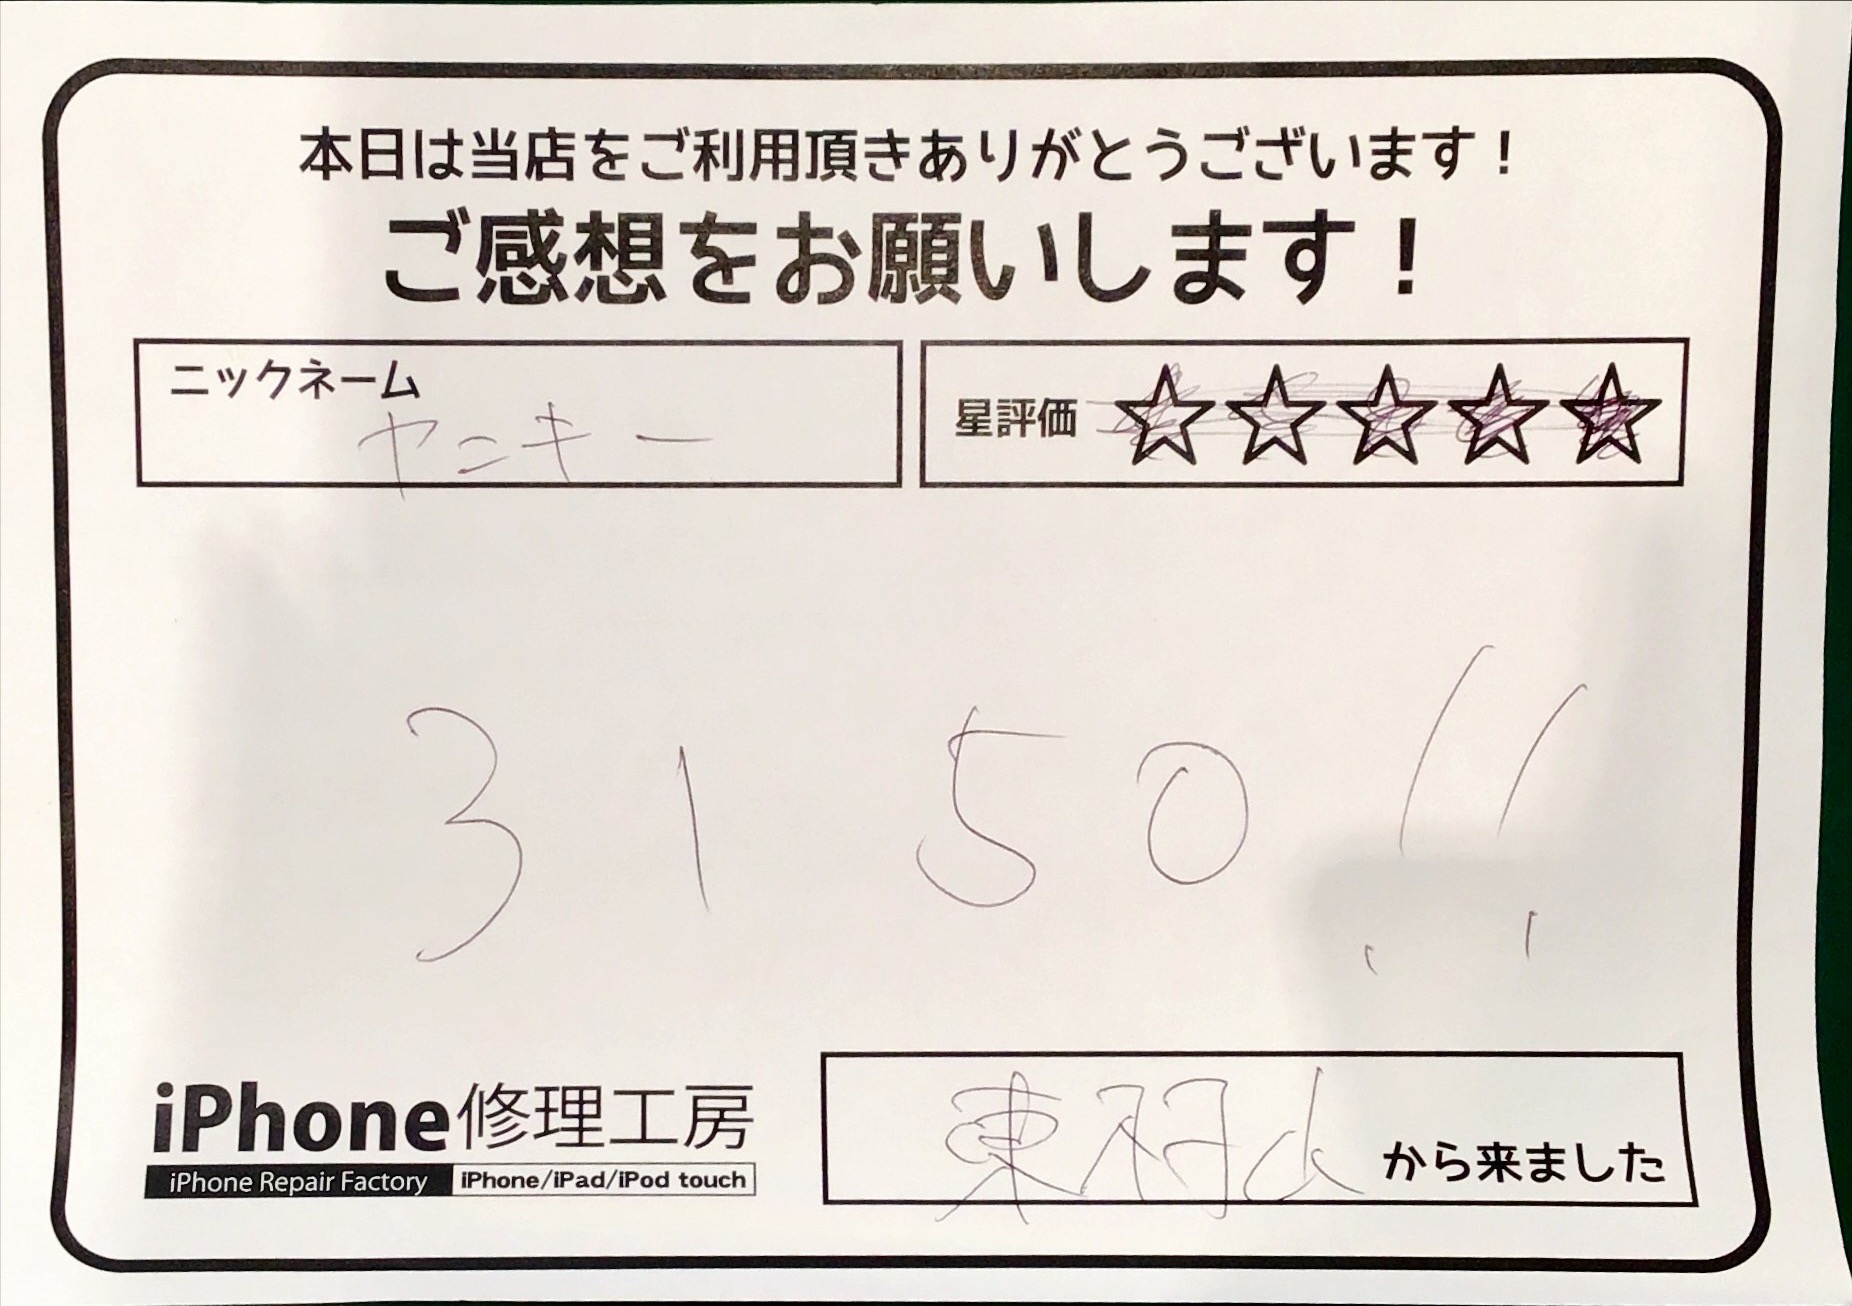 本日は当店をご利用頂きありがとうございます！
ご感想をお願いします！
ニックネーム
ヤニキー
星評価 ☆☆☆☆☆
3150!!
iPhone修理工房
iPhone Repair Factory iPhone/iPad/iPod touch
から来ました